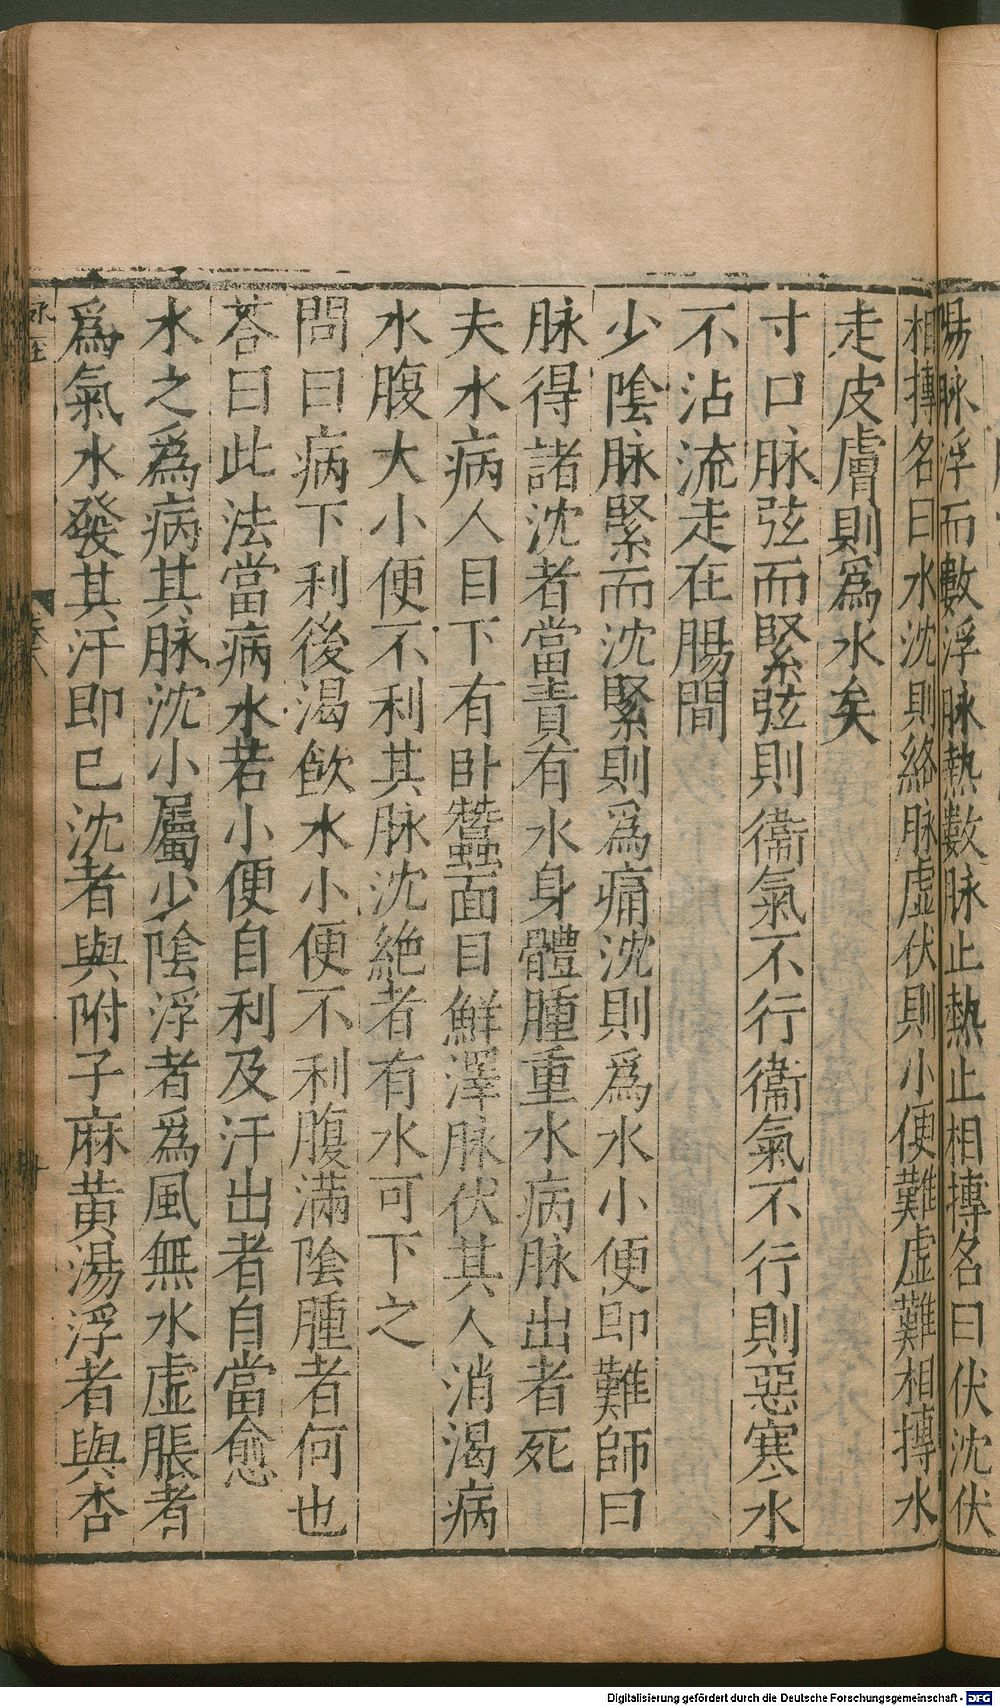 陽脉浮而數浮脉熱數脉止熱止相摶名曰伏沈伏
相摶名曰水沈則絡脉虛伏則小便難虛難相摶水
走皮膚則爲水矣
寸口脉弦而緊弦則衞氣不行衞氣不行則惡寒水
不沾流走在腸間
少陰脉緊而沈緊則爲痛沈則爲水小便即難師曰
脉得諸沈者當責有水身體腫重水病脉出者死
夫水病人目下有卧蠶面目鮮澤脉伏其人消渴病
水腹大小便不利其脉沈絶者有水可下之
問曰病下利後渴飲水小便不利腹滿陰腫者何也
荅曰此法當病水若小便自利及汗出者自當愈
水之爲病其脉沈小屬少陰浮者爲風無水虛脹者
爲氣水發其汗即已沈者與附子麻黄湯浮者與杏
Digitalisierung gefördert durch die Deutsche Forschungsgemeinschaft - DFG